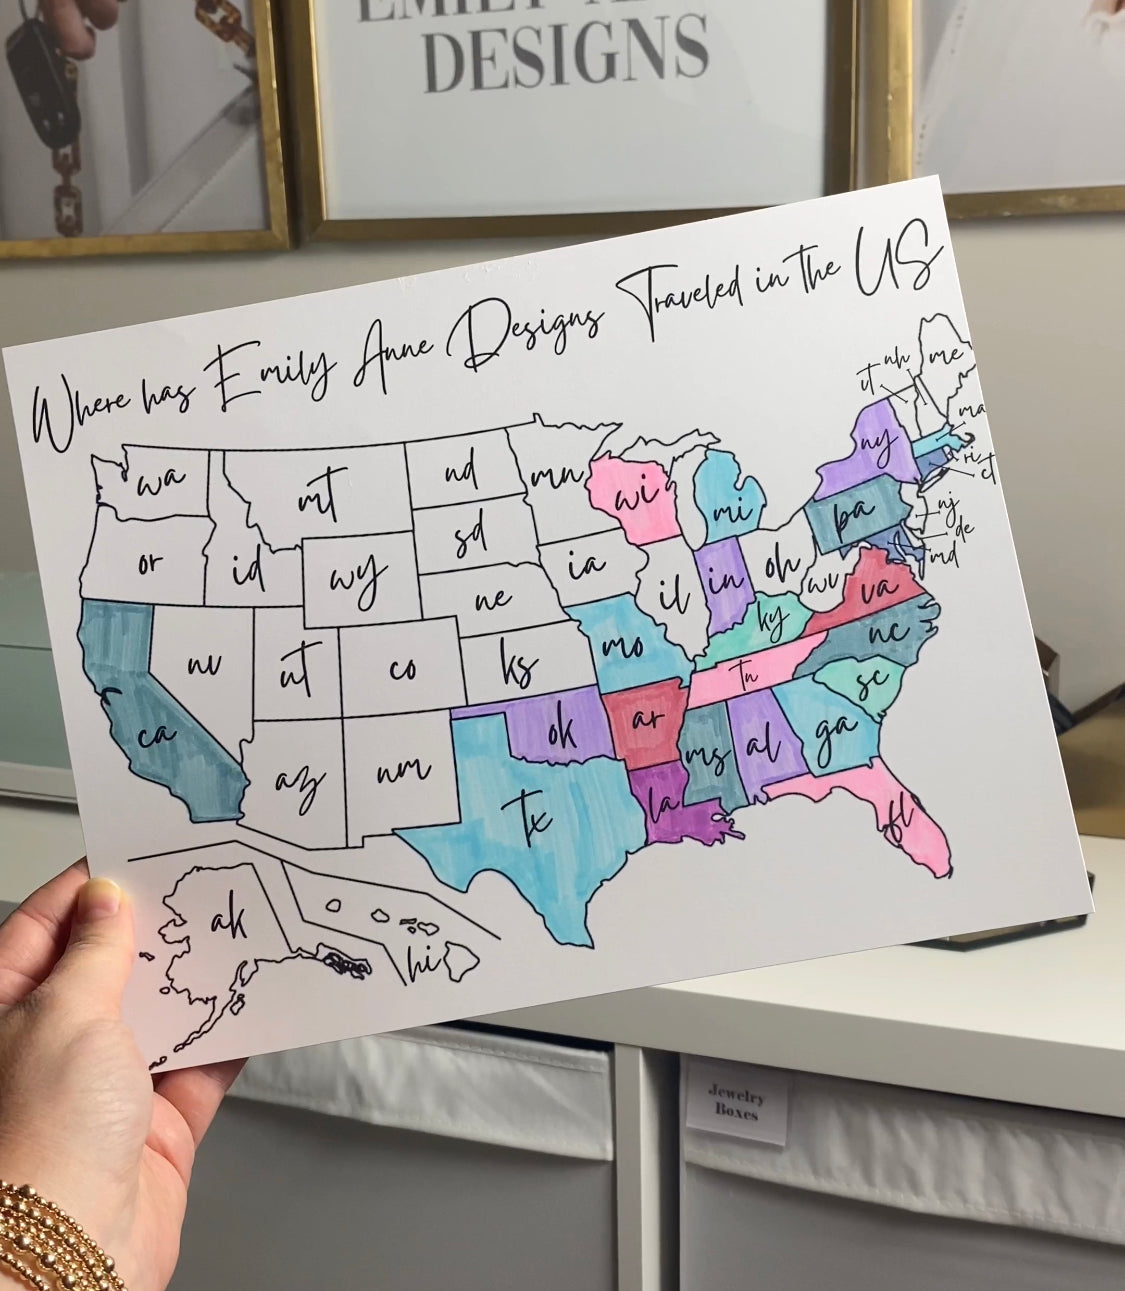 DESIGNS
Where has Emily Anne Designs Traveled in the US
wa
or
ca
id
nv
mt
wy
ut
az
co
nm
nd
sd
ne
ks
ok
tx
mn
ia
mo
ar
la
wi
il
mi
in
oh
ky
tn
ms
al
ga
fl
sc
nc
va
wv
pa
ny
vt
nh
me
ma
ri
ct
nj
de
md
ak
hi
Jewelry
Boxes